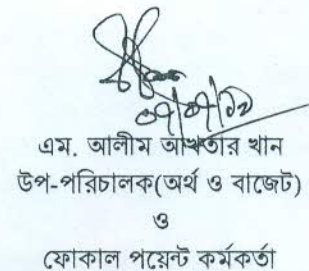 ০৭/০৭/১৯
এম. আলীম আখতার খান
উপ-পরিচালক(অর্থ ও বাজেট)
ও
ফোকাল পয়েন্ট কর্মকর্তা